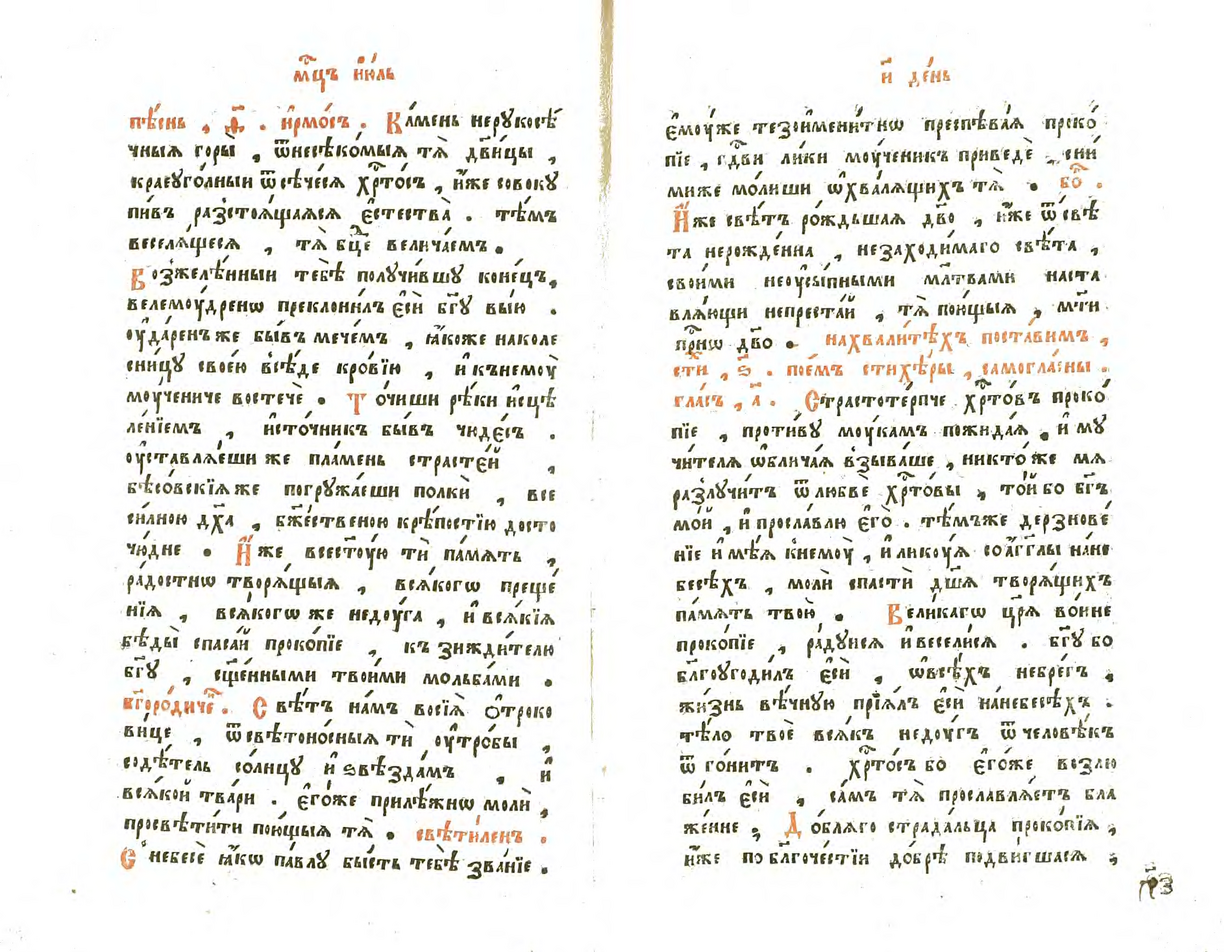 мⷭ҇цъ ию́ль
пѣ́снь , ѳ҃ . ирмо́съ . Ка́мень нерꙋкосѣ́
чныѧ горы̀ , ѿнесѣко́мыѧ тѧ̀ дв҃ицы ,
краеꙋго́лныи ѿсѣче́сѧ хрⷭ҇то́съ , и́же совокꙋ
пи́въ разстоѧ́щаѧсѧ є҆стества̀ . тѣ́мъ
веселѧ́щесѧ , тѧ̀ бц҃е велича́емъ .
Возжелѣ́нныи тебѣ̀ полꙋчи́вшꙋ коне́цъ ,
велемоу́дренѡ преклони́лъ є҆сѝ бг҃ꙋ вы́ю .
оу҆да́ренъ же бы́въ мече́мъ , ꙗ҆́коже наколе
сни́цꙋ свое́ю всѣ́де кро́вїю , и҆ къ немоу̀
моу́чениче востечѐ . Точи́ши рѣ́ки и҆сцѣ
ле́нїемъ , и҆сто́чникъ бы́въ чюде́съ .
оу҆ставлѧ́еши же пла́мень страсте́й ,
бѣсо́вскїѧ же погрꙋжа́еши полкѝ , все
си́лною дх҃а , бж҃е́ственою крѣ́постїю досто
чю́дне . И҆́же всест҃о́ую тѝ па́мѧть ,
ра́достнѡ творѧ́щыѧ , всѧ́когѡ преще́
нїѧ , всѧ́когѡ же недоу́га , и҆ всѧ́кїѧ
бѣды̀ спаса́й проко́пїе , къ зижди́телю
бг҃ꙋ , сщ҃е́нными твои́ми мольба́ми .
бг҃оро́диче . Свѣ́тъ на́мъ восїѧ̀ ѻ҆троко
ви́це , ѿ свѣтоно́сныѧ тѝ оу҆тро́бы ,
содѣ́тель со́лнцꙋ и҆ ѕвѣзда́мъ , и҆
всѧ́кой тва́ри . є҆го́же прилѣ́жнѡ молѝ ,
просвѣти́ти пою́щыѧ тѧ̀ . свѣти́ленъ .
С небесѐ ꙗ҆́кѡ па́влꙋ бы́сть тебѣ̀ зва́нїе .
и҃ де́нь
є҆моу́же тезоимени́тнѡ преспѣва́ѧ проко́
пїе , с дв҃ви ли́ки моу́ченикъ приведѐ , с ни́
миже мо́лиши ѡ҆ хва́лѧщихъ тѧ̀ . бо҃ .
И҆́же свѣ́тъ ро́ждьшаѧ дв҃о , и҆́же ѿ свѣ́
та нерожде́нна , незаходи́маго свѣ́та ,
свои́ми неоусы́пными мл҃твами наста
влѧ́ющи непреста́й , тѧ̀ пою́щыѧ , мт҃и
прⷭ҇нѡ дв҃о . на хвали́тѣхъ поста́вимъ ,
сти́хи , ѕ҃ . пое́мъ стихѣ́ры , самогла́сны .
гла́съ , а҃ . Страстоте́рпче хрⷭ҇то́въ проко́
пїе , проти́вꙋ моу́камъ пожида́ѧ , и҆ мꙋ
чи́телѧ ѡ҆блича́ѧ взыва́ше , никто́же мѧ
разлꙋчи́тъ ѿ любвѐ хрⷭ҇то́вы , то́й бо бг҃ъ
мо́й , и҆ просла́влю є҆го̀ . тѣ́мъже дерзнове́
нїе и҆мѣ́ѧ к немоу̀ , и҆ликоу́ѧ со а҆́гг҃лы нане
бесѣ́хъ , молѝ спастѝ дш҃ѧ творѧ́щихъ
па́мѧть твою̀ . Вели́кагѡ цр҃ѧ во́ине
проко́пїе , ра́дꙋисѧ и҆ весели́сѧ . бг҃ꙋ бо
благоугоди́лъ є҆сѝ , ѡ҆ всѣ́хъ небре́гъ ,
жи́знь вѣ́чнꙋю прїѧ́лъ є҆сѝ на небесѣ́хъ .
тѣ́ло твоѐ всѧ́къ недоу́гъ ѿ человѣ́къ
ѿго́нитъ . хрⷭ҇то́съ бо є҆го́же возлю
би́лъ є҆сѝ , са́мъ тѧ̀ прославлѧ́етъ бла
же́нне , До́блѧго страда́льца проко́пїѧ ,
и҆́же по благоче́стїи до́брѣ подви́гшасѧ ,